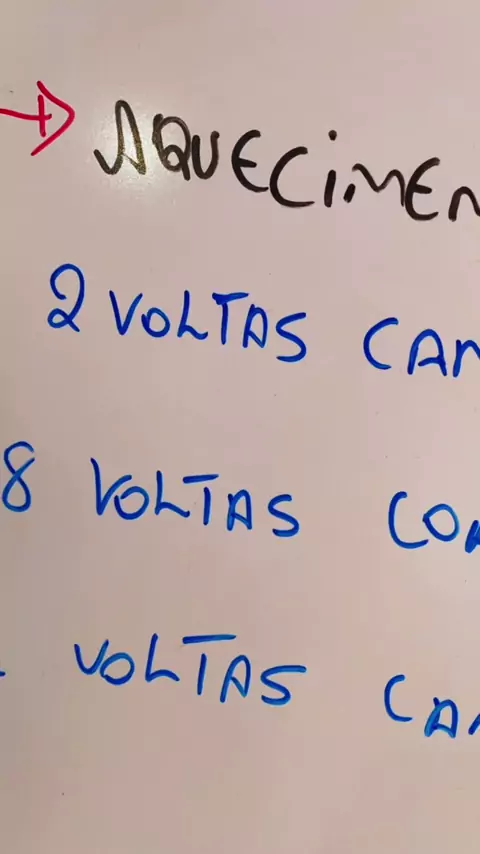 AQUECIMEN
2 VOLTAS CAM
8 VOLTAS COR
VOLTAS CAM